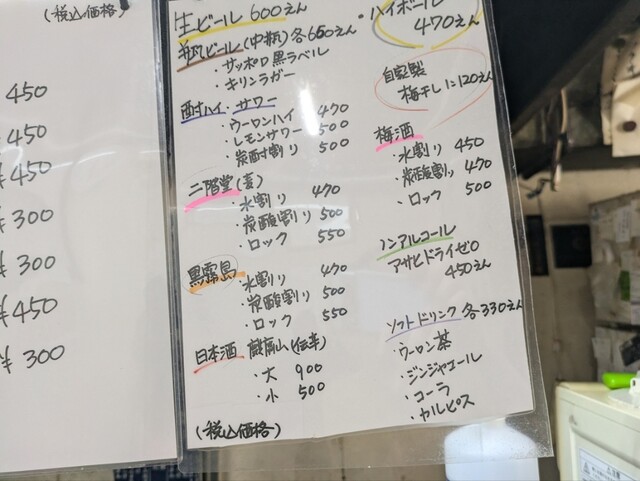 (税込価格)
450
¥450
¥450
¥300
¥300
¥450
¥300
生ビール 600えん
瓶ビール(中瓶)各660えん
・サッポロ黒ラベル
・キリンラガー
酎ハイ・サワー
・ウーロンハイ 470
・レモンサワー 500
・炭酎割り 500
二階堂(麦)
・水割り 470
・炭酸割り 500
・ロック 550
黒霧島
・水割り 470
・炭酸割り 500
・ロック 550
日本酒
・大 900
・小 500
(税込価格)
・ハイボール
470えん
自家製
梅干し1コ120えん
梅酒
・水割り 450
・炭酸割り 470
・ロック 500
ノンアルコール
アサヒドライゼロ
450えん
ソフトドリンク 各330えん
・ウーロン茶
・ジンジャエール
・コーラ
・カルピス